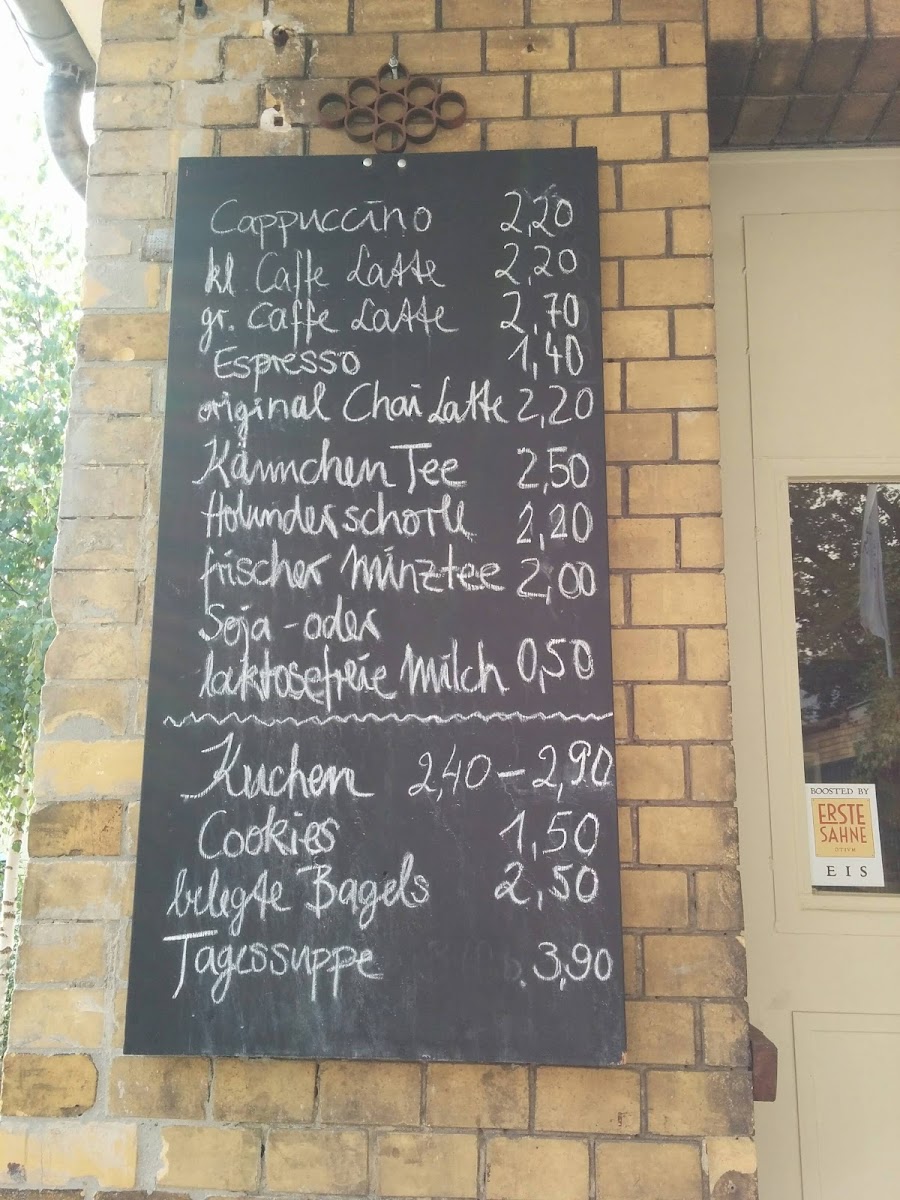 Cappuccino 2,20
kl Caffe Latte 2,20
gr. Caffe Latte 2,70
Espresso 1,40
original Chai Latte 2,20
Kännchen Tee 2,50
Holunderschorle 2,20
frischer Minztee 2,00
Soja - oder
laktosefreie Milch 0,50
Kuchen 2,40 - 2,90
Cookies 1,50
belegte Bagels 2,50
Tagessuppe 3,90
BOOSTED BY
ERSTE
SAHNE
EIS